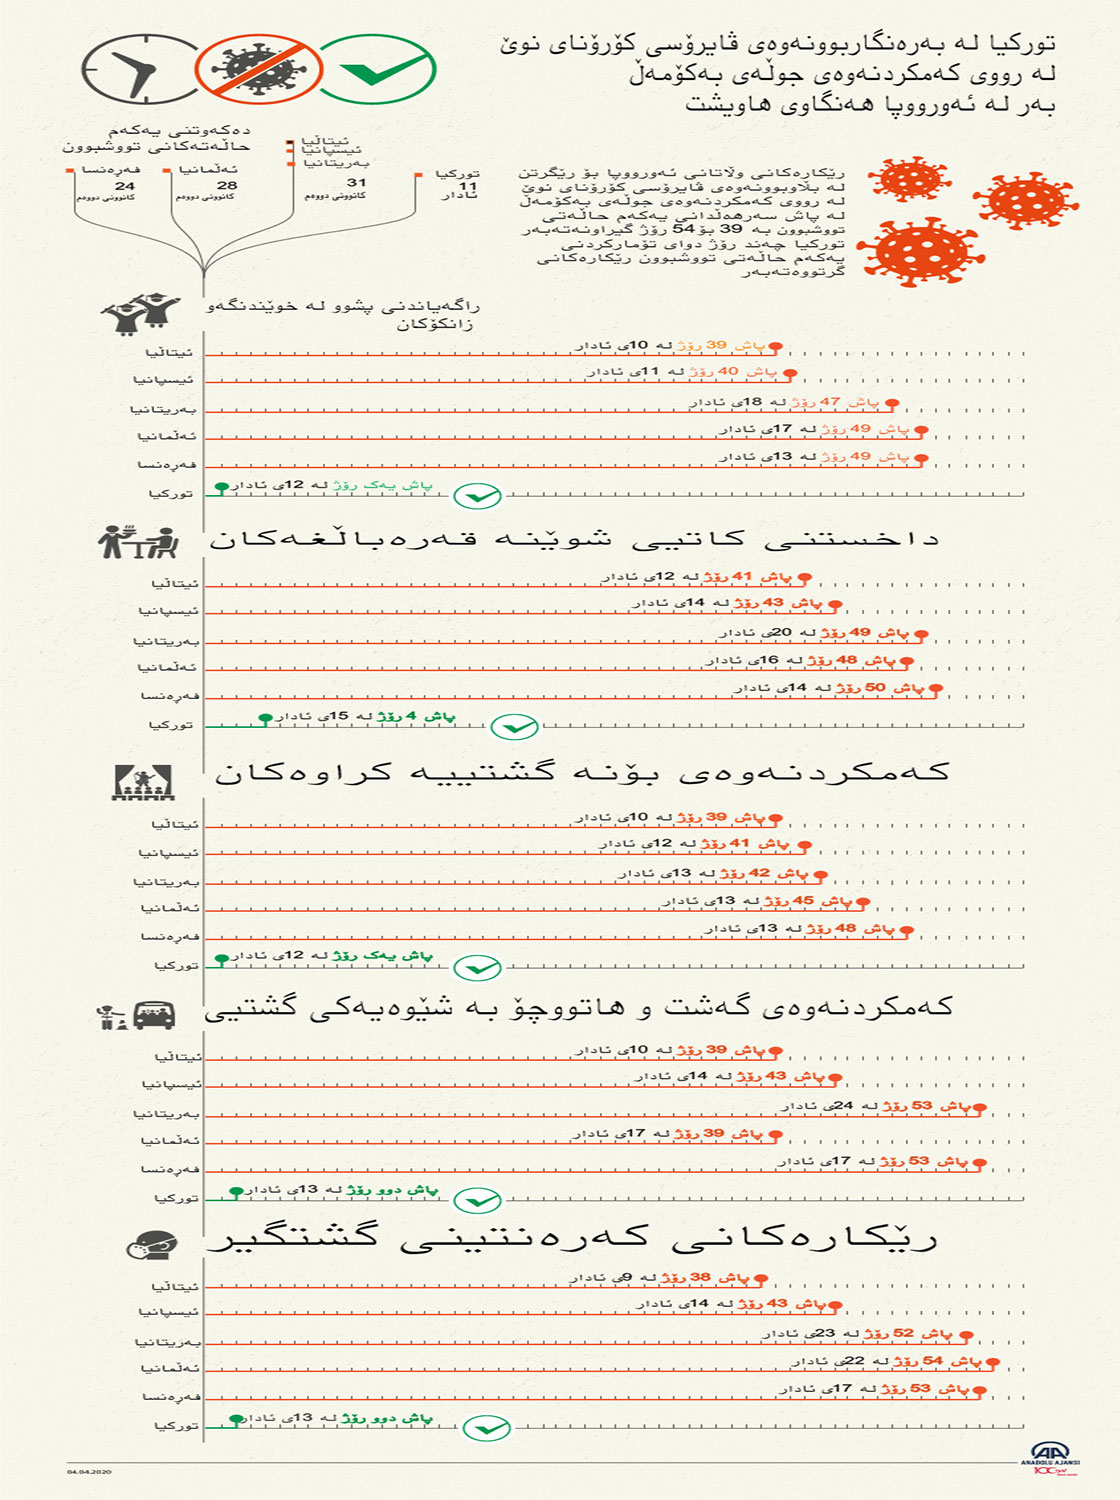 تورکیا لە بەرەنگاربوونەوەی ڤایرۆسی کۆرۆنای نوێ
لە رووی کەمکردنەوەی جوڵەی بەکۆمەڵ
بەر لە ئەورووپا هەنگاوی هاویشت
دەکەوتنی یەکەم
حاڵەتەکانی تووشبوون
فەڕەنسا
24
کانوونی دووەم
ئەڵمانیا
28
کانوونی دووەم
ئیتاڵیا
ئیسپانیا
بەریتانیا
31
کانوونی دووەم
تورکیا
11
ئادار
رێکارەکانی وڵاتانی ئەورووپا بۆ رێگرتن
لە بڵاوبوونەوەی ڤایرۆسی کۆرۆنای نوێ
لە رووی کەمکردنەوەی جوڵەی بەکۆمەڵ
لە پاش سەرهەڵدانی یەکەم حاڵەتی
تووشبوون بە 39 بۆ 54 رۆژ گیراونەتەبەر
تورکیا چەند رۆژ دوای تۆمارکردنی
یەکەم حاڵەتی تووشبوون رێکارەکانی
گرتووەتەبەر
راگەیاندنی پشوو لە خوێندنگەو
زانکۆکان
ئیتاڵیا پاش 39 رۆژ لە 10ی ئادار
ئیسپانیا پاش 40 رۆژ لە 11ی ئادار
بەریتانیا پاش 47 رۆژ لە 18ی ئادار
ئەڵمانیا پاش 49 رۆژ لە 17ی ئادار
فەڕەنسا پاش 49 رۆژ لە 13ی ئادار
تورکیا پاش یەک رۆژ لە 12ی ئادار
داخستنی کاتیی شوێنە قەرەباڵغەکان
ئیتاڵیا پاش 41 رۆژ لە 12ی ئادار
ئیسپانیا پاش 43 رۆژ لە 14ی ئادار
بەریتانیا پاش 49 رۆژ لە 20ی ئادار
ئەڵمانیا پاش 48 رۆژ لە 16ی ئادار
فەڕەنسا پاش 50 رۆژ لە 14ی ئادار
تورکیا پاش 4 رۆژ لە 15ی ئادار
کەمکردنەوەی بۆنە گشتییە کراوەکان
ئیتاڵیا پاش 39 رۆژ لە 10ی ئادار
ئیسپانیا پاش 41 رۆژ لە 12ی ئادار
بەریتانیا پاش 42 رۆژ لە 13ی ئادار
ئەڵمانیا پاش 45 رۆژ لە 13ی ئادار
فەڕەنسا پاش 48 رۆژ لە 13ی ئادار
تورکیا پاش یەک رۆژ لە 12ی ئادار
کەمکردنەوەی گەشت و هاتووچۆ بە شێوەیەکی گشتیی
ئیتاڵیا پاش 39 رۆژ لە 10ی ئادار
ئیسپانیا پاش 43 رۆژ لە 14ی ئادار
بەریتانیا پاش 53 رۆژ لە 24ی ئادار
ئەڵمانیا پاش 39 رۆژ لە 17ی ئادار
فەڕەنسا پاش 53 رۆژ لە 17ی ئادار
تورکیا پاش دوو رۆژ لە 13ی ئادار
رێکارەکانی کەرەنتینی گشتگیر
ئیتاڵیا پاش 38 رۆژ لە 9ی ئادار
ئیسپانیا پاش 43 رۆژ لە 14ی ئادار
بەریتانیا پاش 52 رۆژ لە 23ی ئادار
ئەڵمانیا پاش 54 رۆژ لە 22ی ئادار
فەڕەنسا پاش 53 رۆژ لە 17ی ئادار
تورکیا پاش دوو رۆژ لە 13ی ئادار
04.04.2020
AA
ANADOLU AJANSI
100